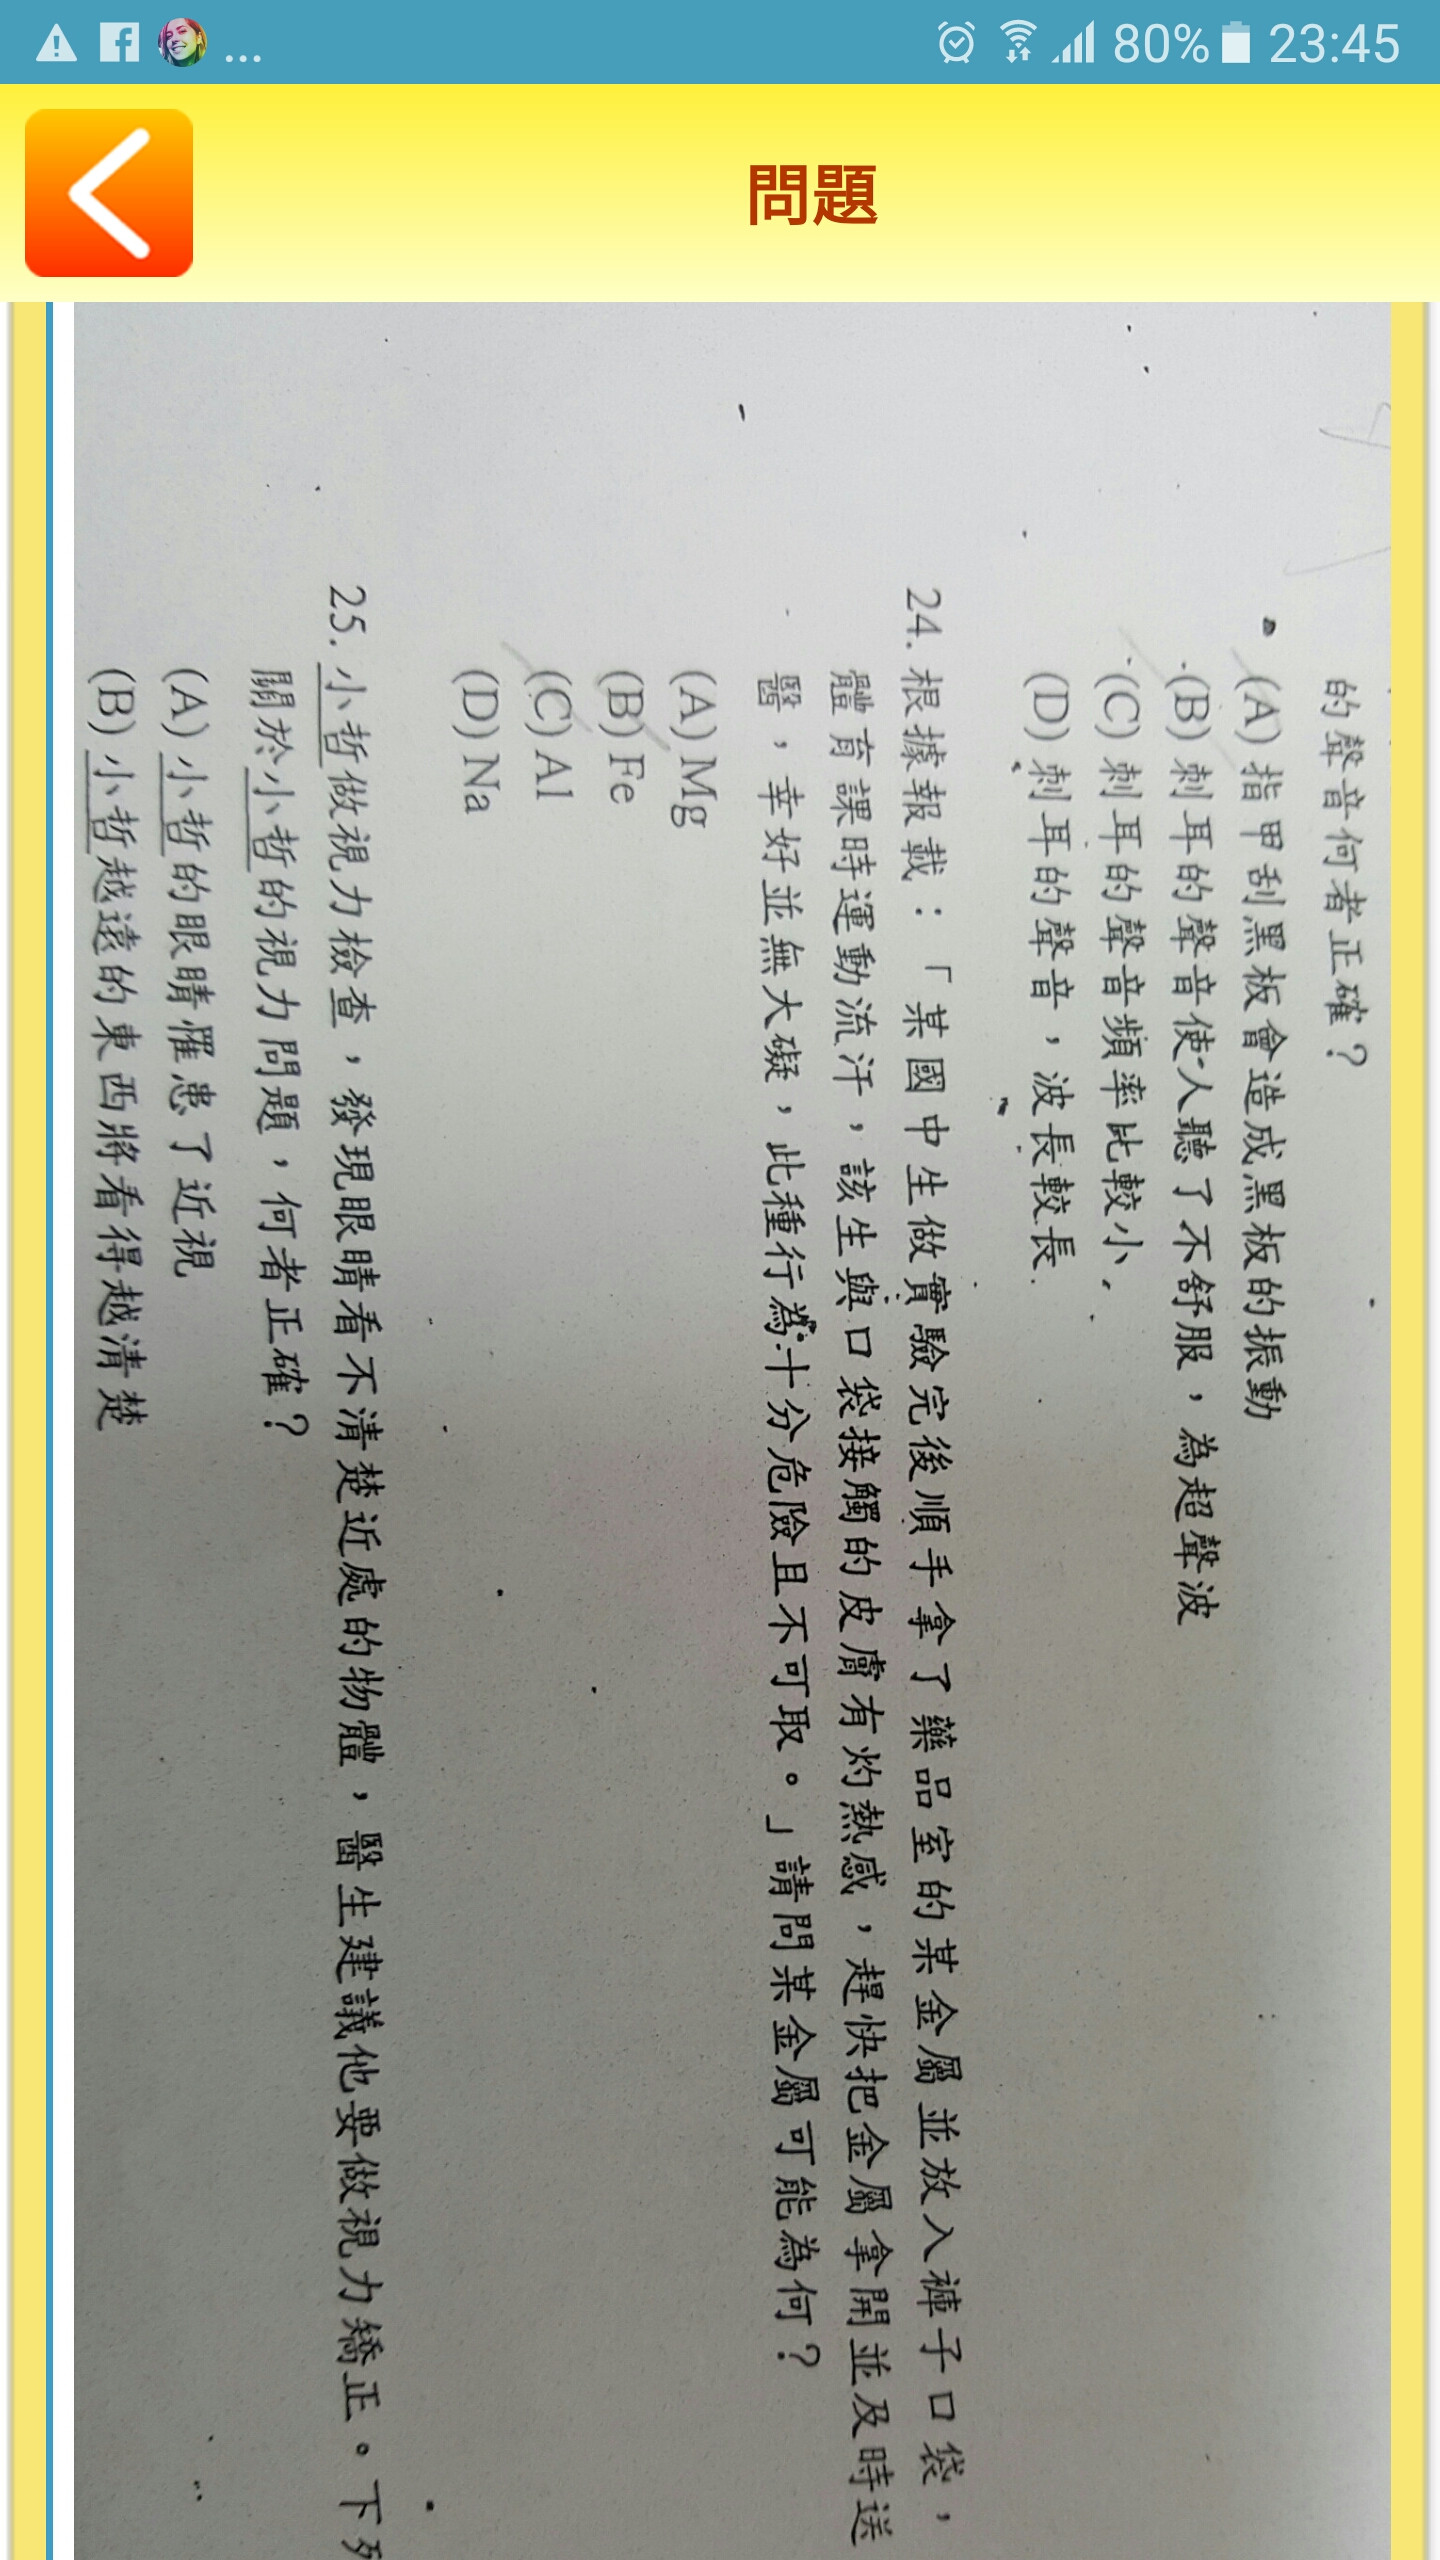 80% 23:45
問題
的聲音何者正確？
(A) 指甲刮黑板會造成黑板的振動
(B) 刺耳的聲音使人聽了不舒服，為超聲波
(C) 刺耳的聲音頻率比較小
(D) 刺耳的聲音，波長較長
24. 根據報載：「某國中生做實驗完後順手拿了藥品室的某金屬並放入褲子口袋，
體育課時運動流汗，該生與口袋接觸的皮膚有灼熱感，趕快把金屬拿開並及時送
醫，幸好並無大礙，此種行為十分危險且不可取。」請問某金屬可能為何？
(A) Mg
(B) Fe
(C) Al
(D) Na
25. 小哲做視力檢查，發現眼睛看不清楚近處的物體，醫生建議他要做視力矯正。下列
關於小哲的視力問題，何者正確？
(A) 小哲的眼睛罹患了近視
(B) 小哲越遠的東西將看得越清楚